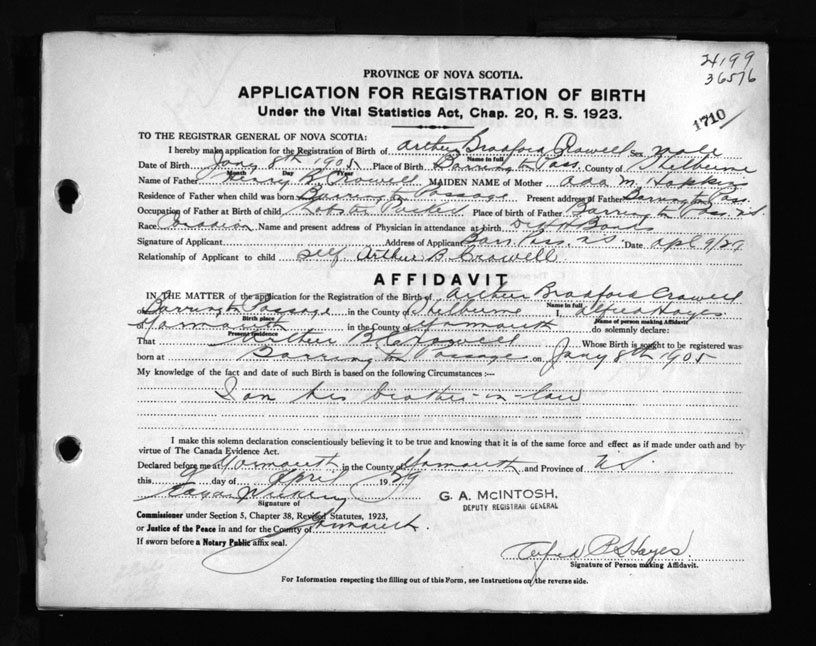 24199
36576
1710/
PROVINCE OF NOVA SCOTIA.
APPLICATION FOR REGISTRATION OF BIRTH
Under the Vital Statistics Act, Chap. 20, R. S. 1923.
TO THE REGISTRAR GENERAL OF NOVA SCOTIA:
I hereby make application for the Registration of Birth of Arthur Bradford Crowell Sex male
Name in full
Date of Birth Jany 8th 1905 Place of Birth Barrington Pass. County of Shelburne
Month Day Year
Name of Father B. Crowell MAIDEN NAME of Mother Ada M. Hopkins
Residence of Father when child was born Barrington Passage Present address of Father Barrington Pass.
Occupation of Father at Birth of child Lobster Packer Place of birth of Father Barrington Pass. N.S.
Race Name and present address of Physician in attendance at birth Dr
Signature of Applicant Address of Applicant Barr. Pass. N.S. Date Apl 9/29
Relationship of Applicant to child self. Arthur B. Crowell
AFFIDAVIT
IN THE MATTER of the application for the Registration of the Birth of Arthur Bradford Crowell
Name in full
of Barrington Passage in the County of Shelburne I, Alfred Hayes
Birth place Name of person making Affidavit
Yarmouth in the County of Yarmouth do solemnly declare:
Present residence
That Arthur B. Crowell Whose Birth is sought to be registered was
born at Barrington Passage on Jany 8th 1905
My knowledge of the fact and date of such Birth is based on the following Circumstances :—
I am his brother-in-law
I make this solemn declaration conscientiously believing it to be true and knowing that it is of the same force and effect as if made under oath and by
virtue of The Canada Evidence Act.
Declared before me at Yarmouth in the County of Yarmouth and Province of N.S.
this 9 day of April 1929
Signature of
G. A. McINTOSH,
DEPUTY REGISTRAR GENERAL
Commissioner under Section 5, Chapter 38, Revised Statutes, 1923,
or Justice of the Peace in and for the County of Yarmouth.
If sworn before a Notary Public affix seal.
Alfred P. Hayes.
Signature of Person making Affidavit.
For Information respecting the filling out of this Form, see Instructions on the reverse side.